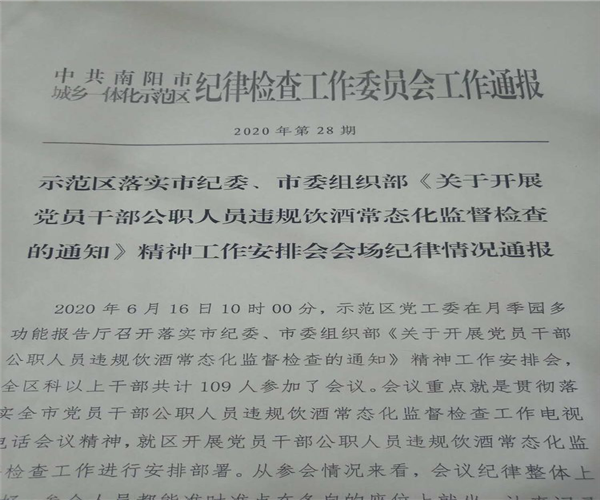 中共南阳市
城乡一体化示范区
纪律检查工作委员会工作通报
2020年第28期
示范区落实市纪委、市委组织部《关于开展
党员干部公职人员违规饮酒常态化监督检查
的通知》精神工作安排会会场纪律情况通报
2020年6月16日10时00分，示范区党工委在月季园多
功能报告厅召开落实市纪委、市委组织部《关于开展党员干部
公职人员违规饮酒常态化监督检查的通知》精神工作安排会，
全区科以上干部共计109人参加了会议。会议重点就是贯彻落
实全市党员干部公职人员违规饮酒常态化监督检查工作电视
电话会议精神，就区开展党员干部公职人员违规饮酒常态化监
检查工作进行安排部署。从参会情况来看，会议纪律整体上
好，参会人员都能准时准点在各自的座位上就坐